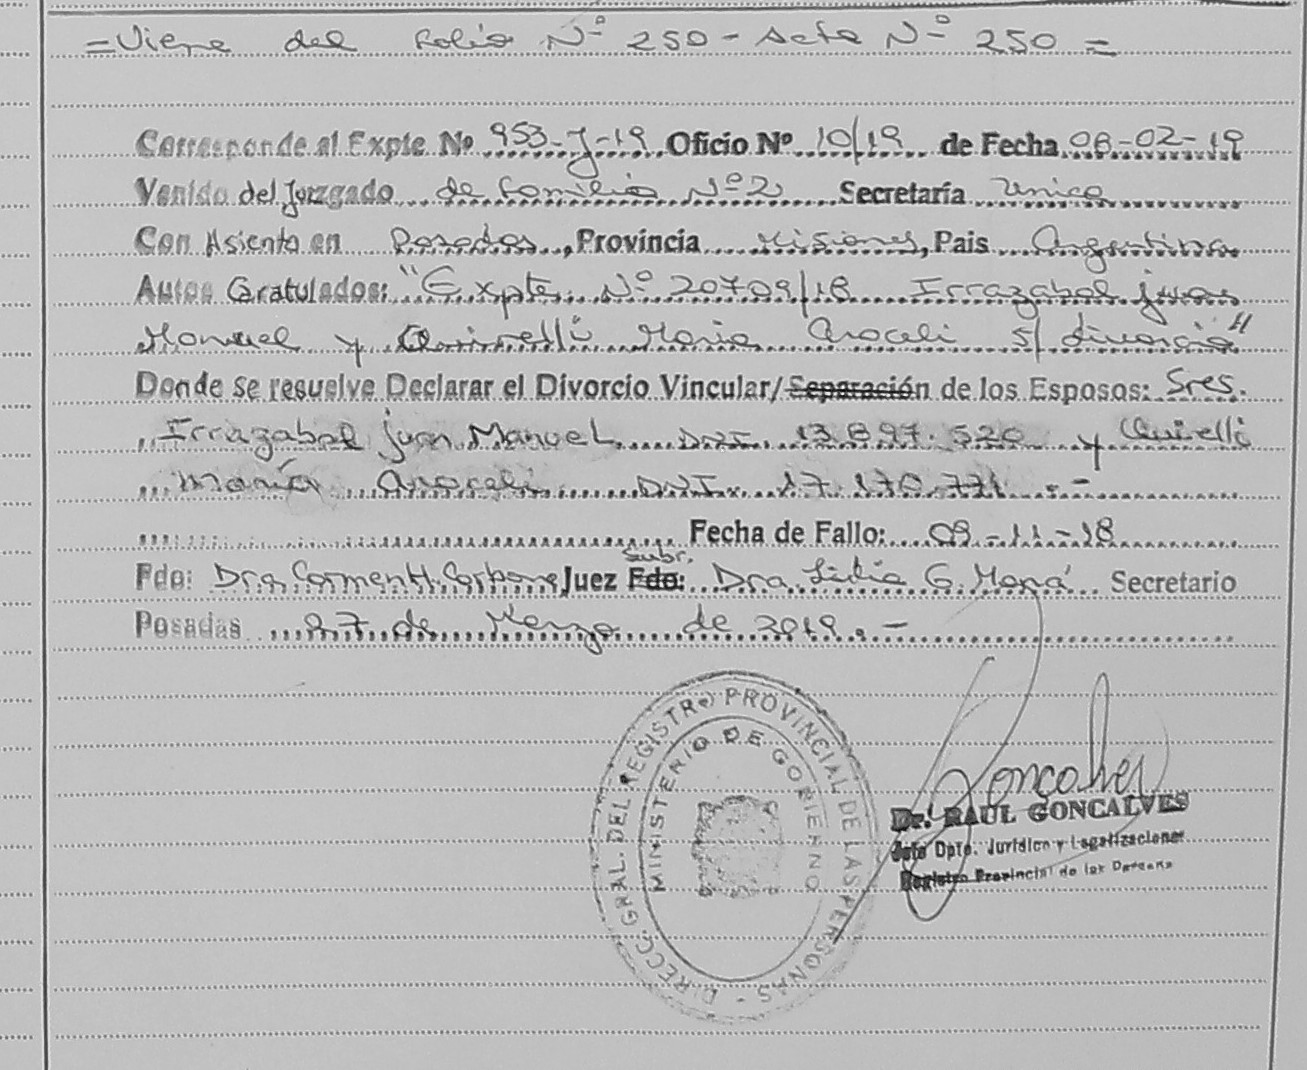 =Viene del folio Nº 250 - Acta Nº 250 =
Corresponde al Expte Nº 953-J-19 Oficio Nº 10/19 de Fecha 08-02-19
Venido del Juzgado de Familia Nº 2 Secretaría Unica
Con Asiento en Posadas, Provincia Misiones, Pais Argentina
Autos Caratulados: "Expte. Nº 20709/18 Irrazabal Juan
Manuel y Quirelli Maria Araceli S/ divorcio"
Donde se resuelve Declarar el Divorcio Vincular/Separación de los Esposos: Sres.
Irrazabal Juan Manuel DNI. 13.897.520 y Quirelli
María Araceli DNI. 17.170.771 . -
Fecha de Fallo: 09-11-18
Subr.
Fdo: Dra. Carmen H. Carbone Juez Fdo: Dra. Lidia G. Secretario
Posadas 27 de Marzo de 2019. -
DIRECC. GRAL. DEL REGISTRO PROVINCIAL DE LAS PERSONAS -
MINISTERIO DE GOBIERNO
Goncalves
Dr. RAUL GONCALVES
Jefe Dpto. Jurídico y Legalizaciones
Registro Provincial de las Persona